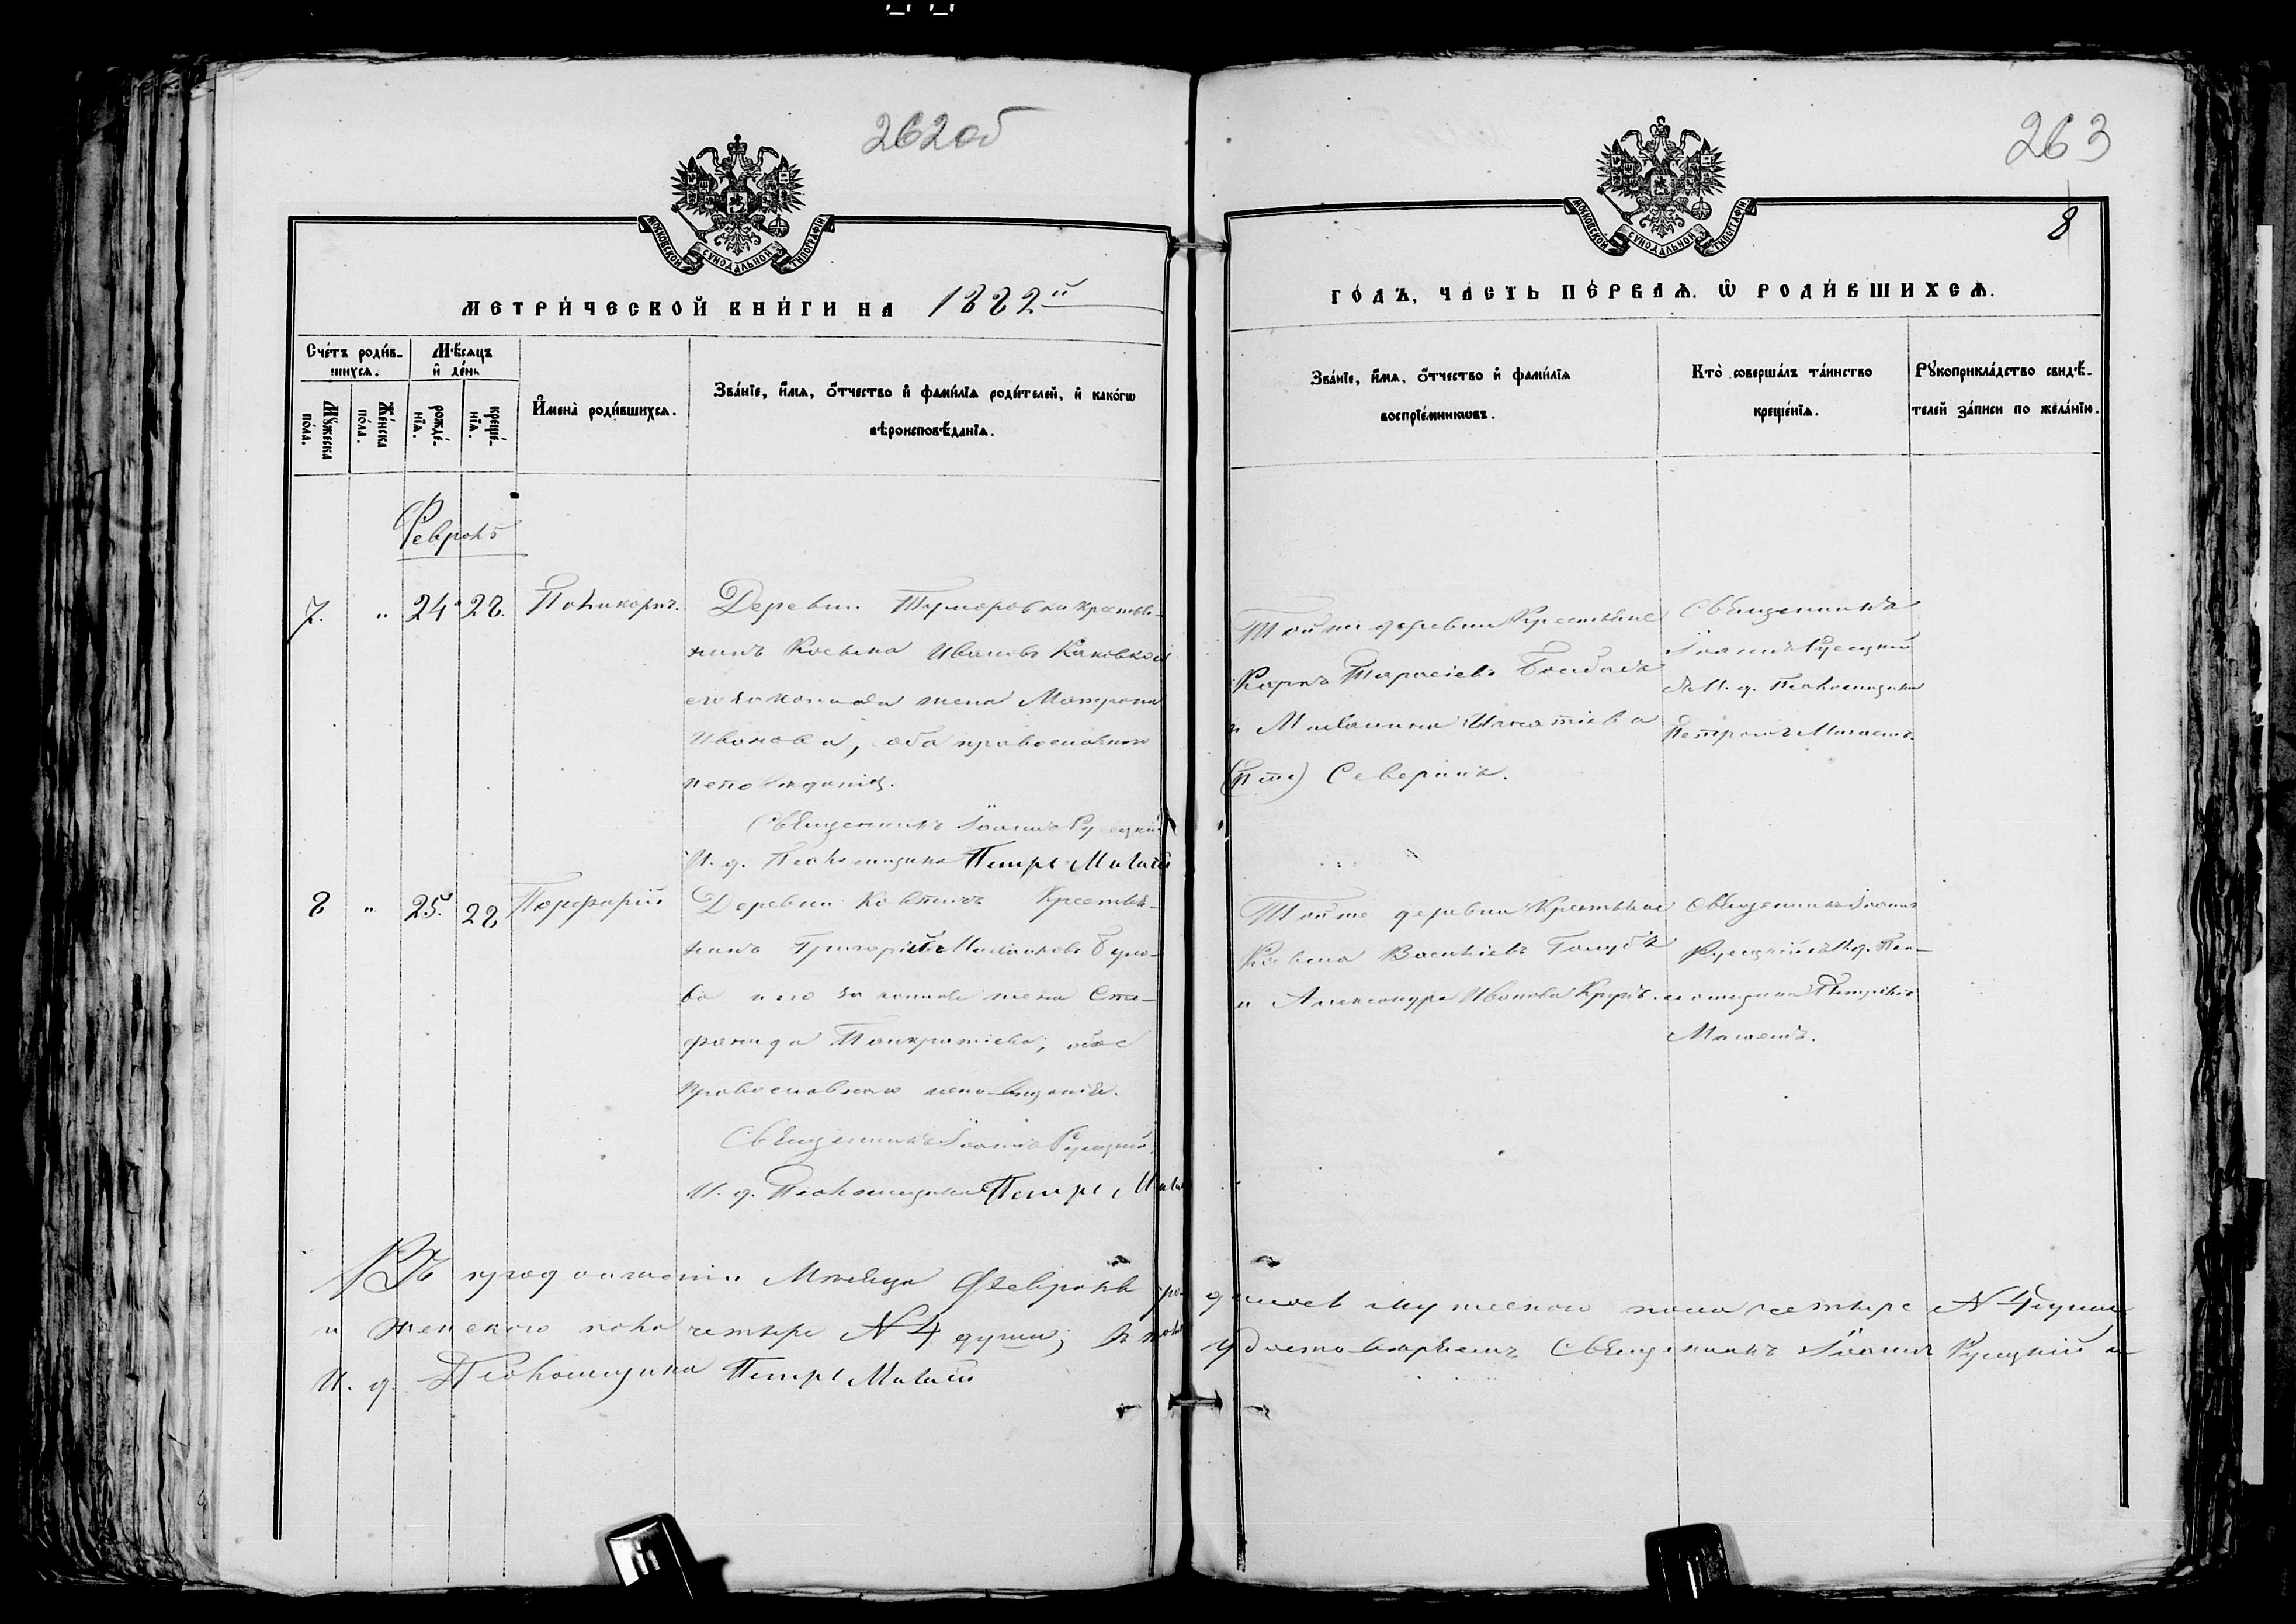 262 об
263
8
МОСКОВСКОЙ СѴНОДАЛЬНОЙ ТИПОГРАФІИ
МОСКОВСКОЙ СѴНОДАЛЬНОЙ ТИПОГРАФІИ
МЕТРИ́ЧЕСКОЙ КНИ́ГИ НА 1882й
ГО́ДЪ, ЧА́СТЬ ПЕ́РВАѦ. Ѿ РОДИ́ВШИХСѦ.
Сче́тъ роди́в-
шихсѧ.
Мꙋ́жеска по́ла.
Же́нска по́ла.
Мѣ́сѧцъ
и҆ де́нь
рожде́-
нїѧ.
креще́-
нїѧ.
И҆мена̀ роди́вшихсѧ.
Зва́нїе, и҆́мѧ, ѻ҆́тчество и҆ фами́лїѧ роди́телей, и҆ како́гѡ
вѣроисповѣ́данїѧ.
Зва́нїе, и҆́мѧ, ѻ҆́тчество и҆ фами́лїѧ
воспрїе́мникѡвъ.
Кто̀ соверша́лъ та́инство
креще́нїѧ.
Рꙋкоприкла́дство свидѣ́-
телей за́писи по жела́нїю.
Февраль
7. " 24 28. Поликарпъ.
Деревни крестья-
нинъ Косьма Ивановъ
его законная жена Матрона
Иванова, оба православнаго
исповѣданія.
Священникъ Іоаннъ Русецкій
И. д. Псаломщика Петръ
Той же деревни Крестьяне
Карпъ Тарасіевъ
и Игнатіева
Северинъ.
Священникъ
Іоаннъ Русецкій
съ И. д. Псаломщика
Петромъ
8 " 25. 28 Порфирій
Деревни Крестья-
нинъ Григорій
и его законная жена Сте-
фанида Панкратіева, оба
православнаго исповѣданія.
Священникъ Іоаннъ Русецкій
И. д. Псаломщика Петръ
Той же деревни Крестьяне
Косьма Васильевъ Голубъ
и Александра Иванова
Священникъ Іоаннъ
Русецкій съ И. д. Пса-
ломщика Петромъ
Въ продолженіи Мѣсяца Февраля родилось мужескаго пола четыре №4 души
и женскаго пола четыре №4 души; въ томъ удостовѣряемъ Священникъ Іоаннъ Русецкій и
И. д. Псаломщика Петръ